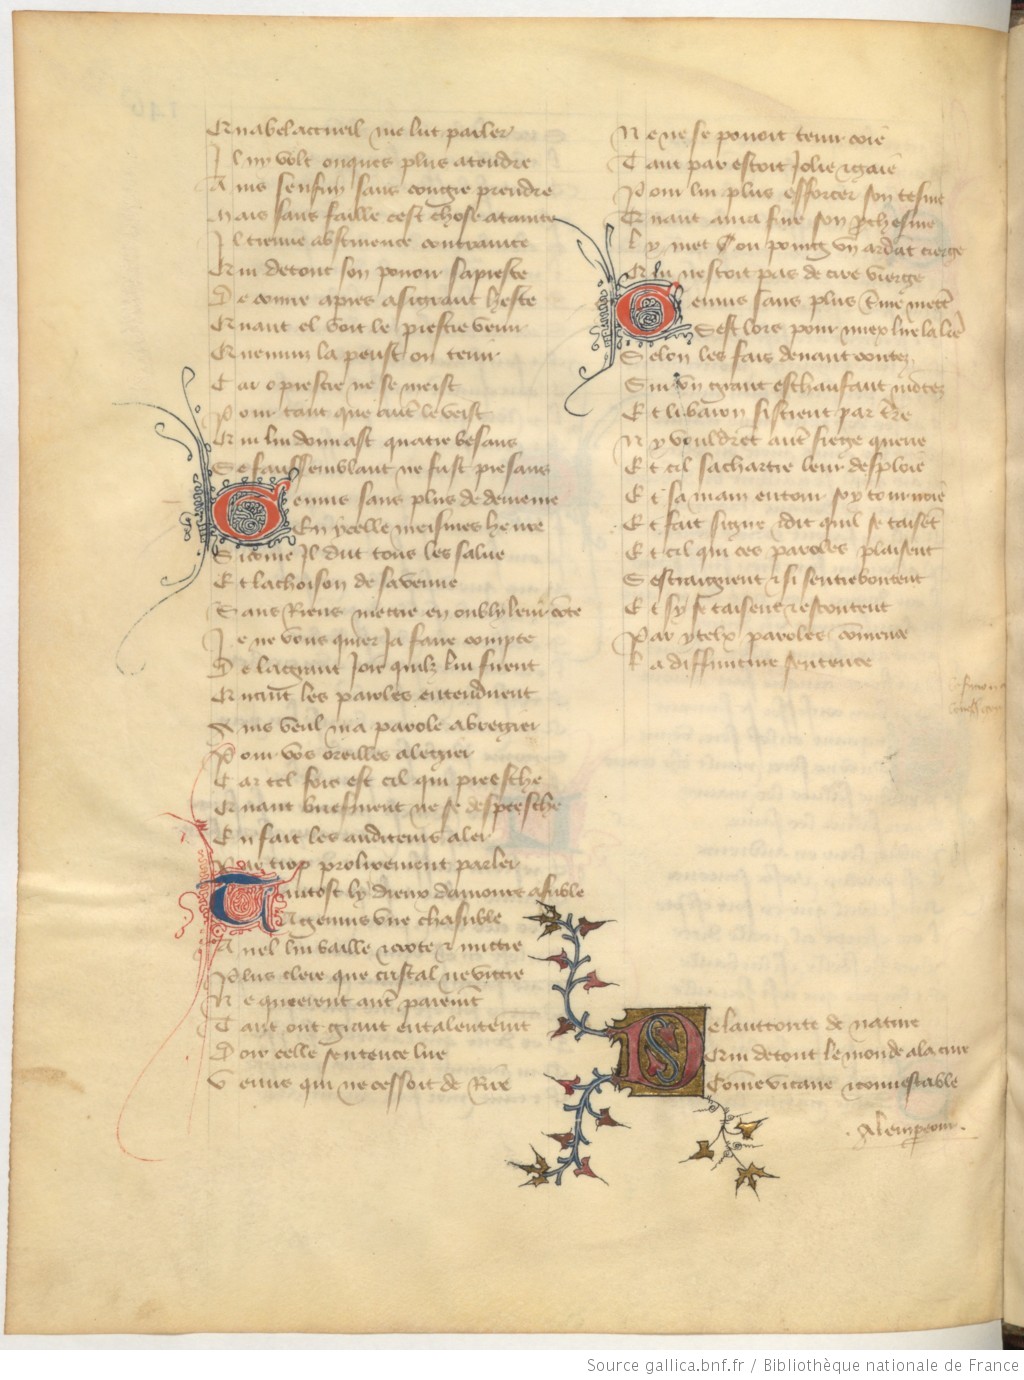 Qu a bel accueil me lut parler
Il ny volt onques plus atendre
Ains senfuy sans congie prendre
Mais sans faille cest chose atainte
Il tienne abstinence contrainte
Qui de tout son pouoir sapreste
De courre apres a si grant heste
Quant el voit le prestre venir
Qu enuiz la peust on tenir
Car o prestre ne se meist
Pour tant que autre le veist
Qui lui donnast quatre besans
Se faussemblant ne fust presans
Genius sans plus de demeure
En ycelle meismes heure
Si come Il dut tous les salue
Et lachoison de sa venue
Sans Riens mettre en oubly leur compte
Je ne vous quier Ja faire compte
De la grant Joie quilz lui firent
Quant les paroles entendirent
Ains veul ma parole abregier
Pour vos oreilles alegier
Car tel fois est cil qui preesche
Quant briefment ne se despeesche
En fait les auditeurs aler
Par trop prolixement parler
Tantost ly dieux damours afuble
A genius vne chasuble
Anel lui baille et crote et mittre
Plus clere que cristal ne vittre
Ne quierent autre parement
Tant ont grant entalentement
Doir celle sentence lire
Venus qui ne cessoit de Rire
Ne ne se pouoit tenir coie
Tant par estoit Jolie et gaie
Pour lui plus esforcer son tesme
Quant aura fine son
Ly met ou poing vn ardant cierge
Qui nestoit pas de cire vierge
Genius sans plus terme mettre
Sest lors pour miex lire la lettre
Selon les fais deuant contez
Sur vn grant eschaufaut montez
Et li baron sistrent par terre
Ny vouldrent autre siege querre
Et cil sa chartre leur desploie
Et sa main entour soy tournoie
Et fait signe et dit quil se taisent
Et cil qui ces paroles plaisent
Sestraignent et si sentreboutent
Et sy se taisent et escoutent
Par ytelx paroles comence
La diffinitiue sentence
De lauttorite de nature
Qui de tout le monde a la cure
Come vicaire et connestable
. A lempereour .
Source gallica.bnf.fr / Bibliothèque nationale de France